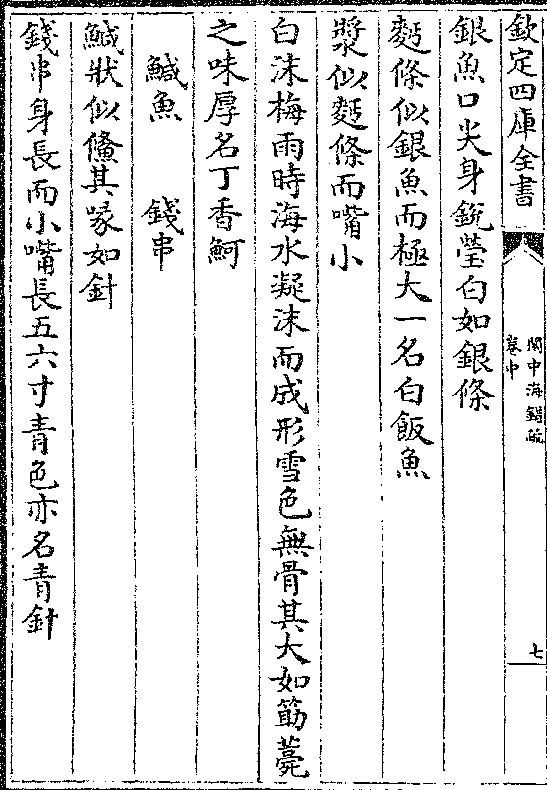 欽定四庫全書
閩中海錯疏
卷中
七
銀魚口尖身銳瑩白如銀條
麫條似銀魚而極大一名白飯魚
漿似麫條而嘴小
白沫梅雨時海水凝沫而成形雪色無骨其大如筯薨
之味厚名丁香魺
鰔魚　錢串
鰔狀似鱶其喙如針
錢串身長而小嘴長五六寸青色亦名青針